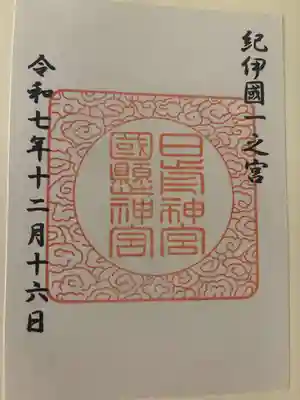 紀伊國一之宮
日前神宮
國懸神宮
令和七年十二月十六日